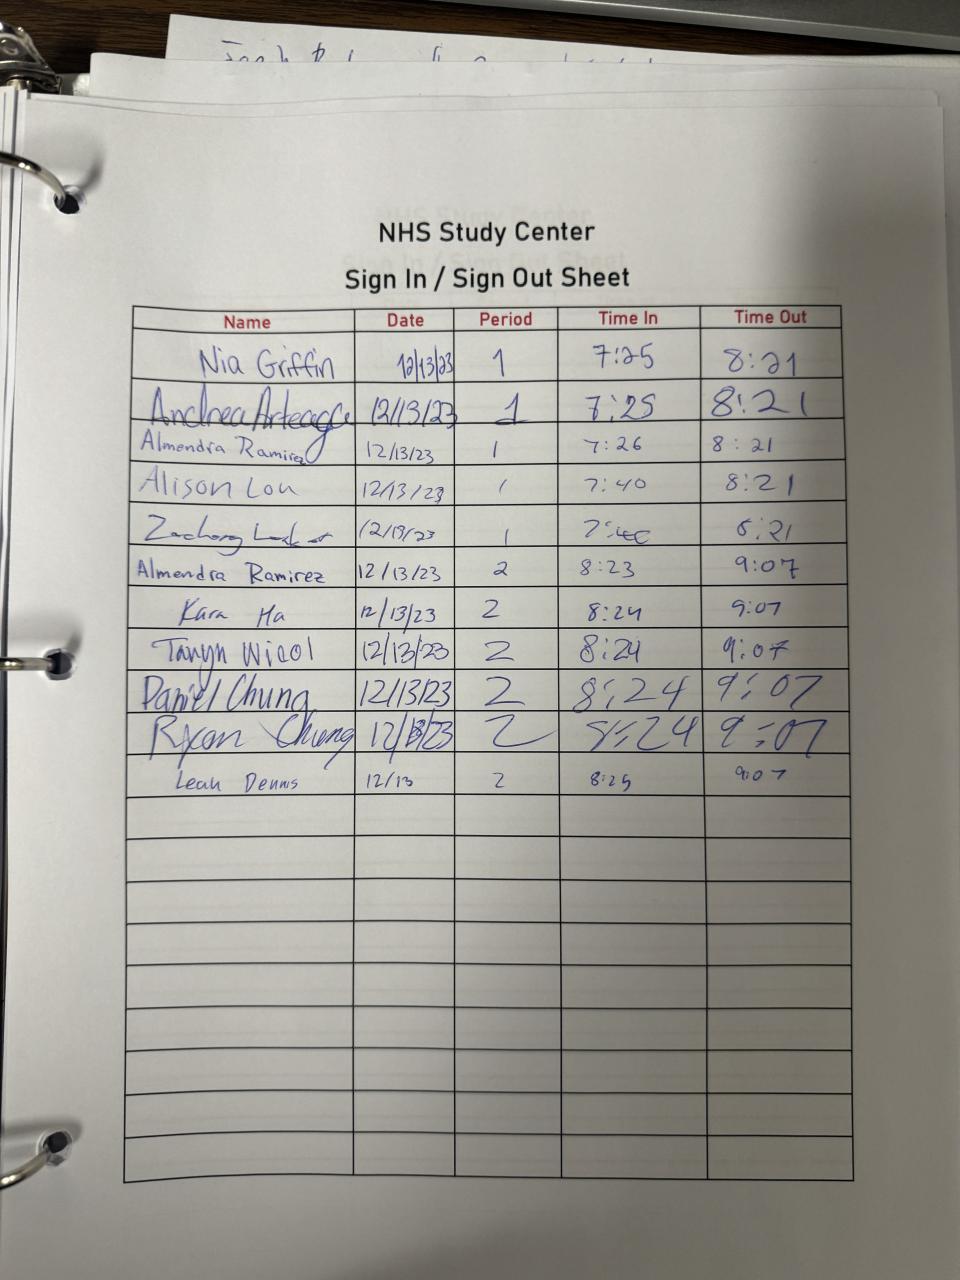 NHS Study Center
Sign In / Sign Out Sheet
Name Date Period Time In Time Out
Nia Griffin 12/13/23 1 7:25 8:21
Andrea 12/13/23 1 7:25 8:21
Almendra Ramirez 12/13/23 1 7:26 8:21
Alison Lou 12/13/23 1 7:40 8:21
Zachary 1 8:21
Almendra Ramirez 12/13/23 2 8:23 9:07
Kara Ha 12/13/23 2 8:24 9:07
Tanyn Nicol 12/13/23 2 8:24 9:07
Daniel Chung 12/13/23 2 8:24 9:07
Ryan Chung 12/13/23 2 8:24 9:07
Leah Dennis 12/13 2 8:25 9:07